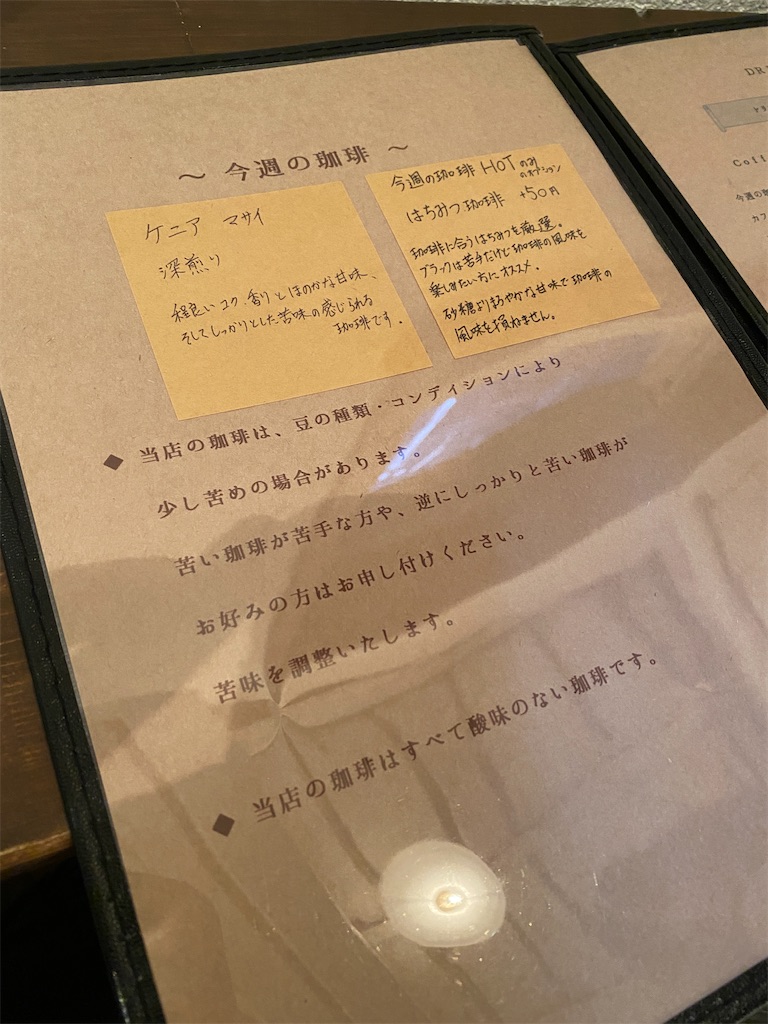 ～ 今週の珈琲 ～
ケニア マサイ
深煎り
程良いコク 香りとほのかな甘味、
そしてしっかりとした苦味の感じられる
珈琲です。
今週の珈琲 HOTのみ
のオプション
はちみつ珈琲 +50円
珈琲に合うはちみつを厳選。
ブラックは苦手だけど珈琲の風味を
楽しみたい方にオススメ。
砂糖よりまろやかな甘味で珈琲の
風味を損ねません。
◆ 当店の珈琲は、豆の種類・コンディションにより
少し苦めの場合があります。
苦い珈琲が苦手な方や、逆にしっかりと苦い珈琲が
お好みの方はお申し付けください。
苦味を調整いたします。
◆ 当店の珈琲はすべて酸味のない珈琲です。
DR
Coff
今週の珈
カフ